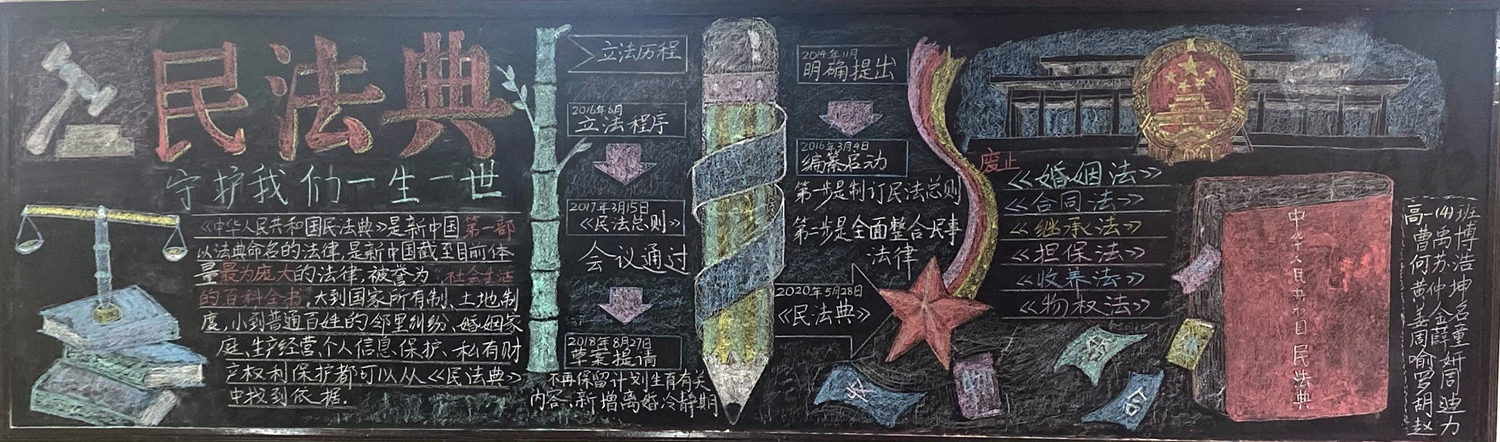 民法典
守护我们一生一世
《中华人民共和国民法典》是新中国第一部
以法典命名的法律,是新中国截至目前体
量最为庞大的法律,被誉为“社会生活
的百科全书”,大到国家所有制、土地制
度,小到普通百姓的邻里纠纷、婚姻家
庭、生产经营、个人信息、保护、私有财
产权利保护都可以从《民法典》
中找到依据.
立法历程
2016年6月
立法程序
2017年3月15日
《民法总则》
会议通过
2018年8月27日
草案提请
不再保留计划生育有关
内容、新增离婚冷静期
2014年11月
明确提出
2016年3月4日
编纂启动
第一步是制订民法总则
第二步是全面整合民事
法律
2020年5月28日
《民法典》
废止
《婚姻法》
《合同法》
《继承法》
《担保法》
《收养法》
《物权法》
中华人民共和国民法典
公
高一(4)班